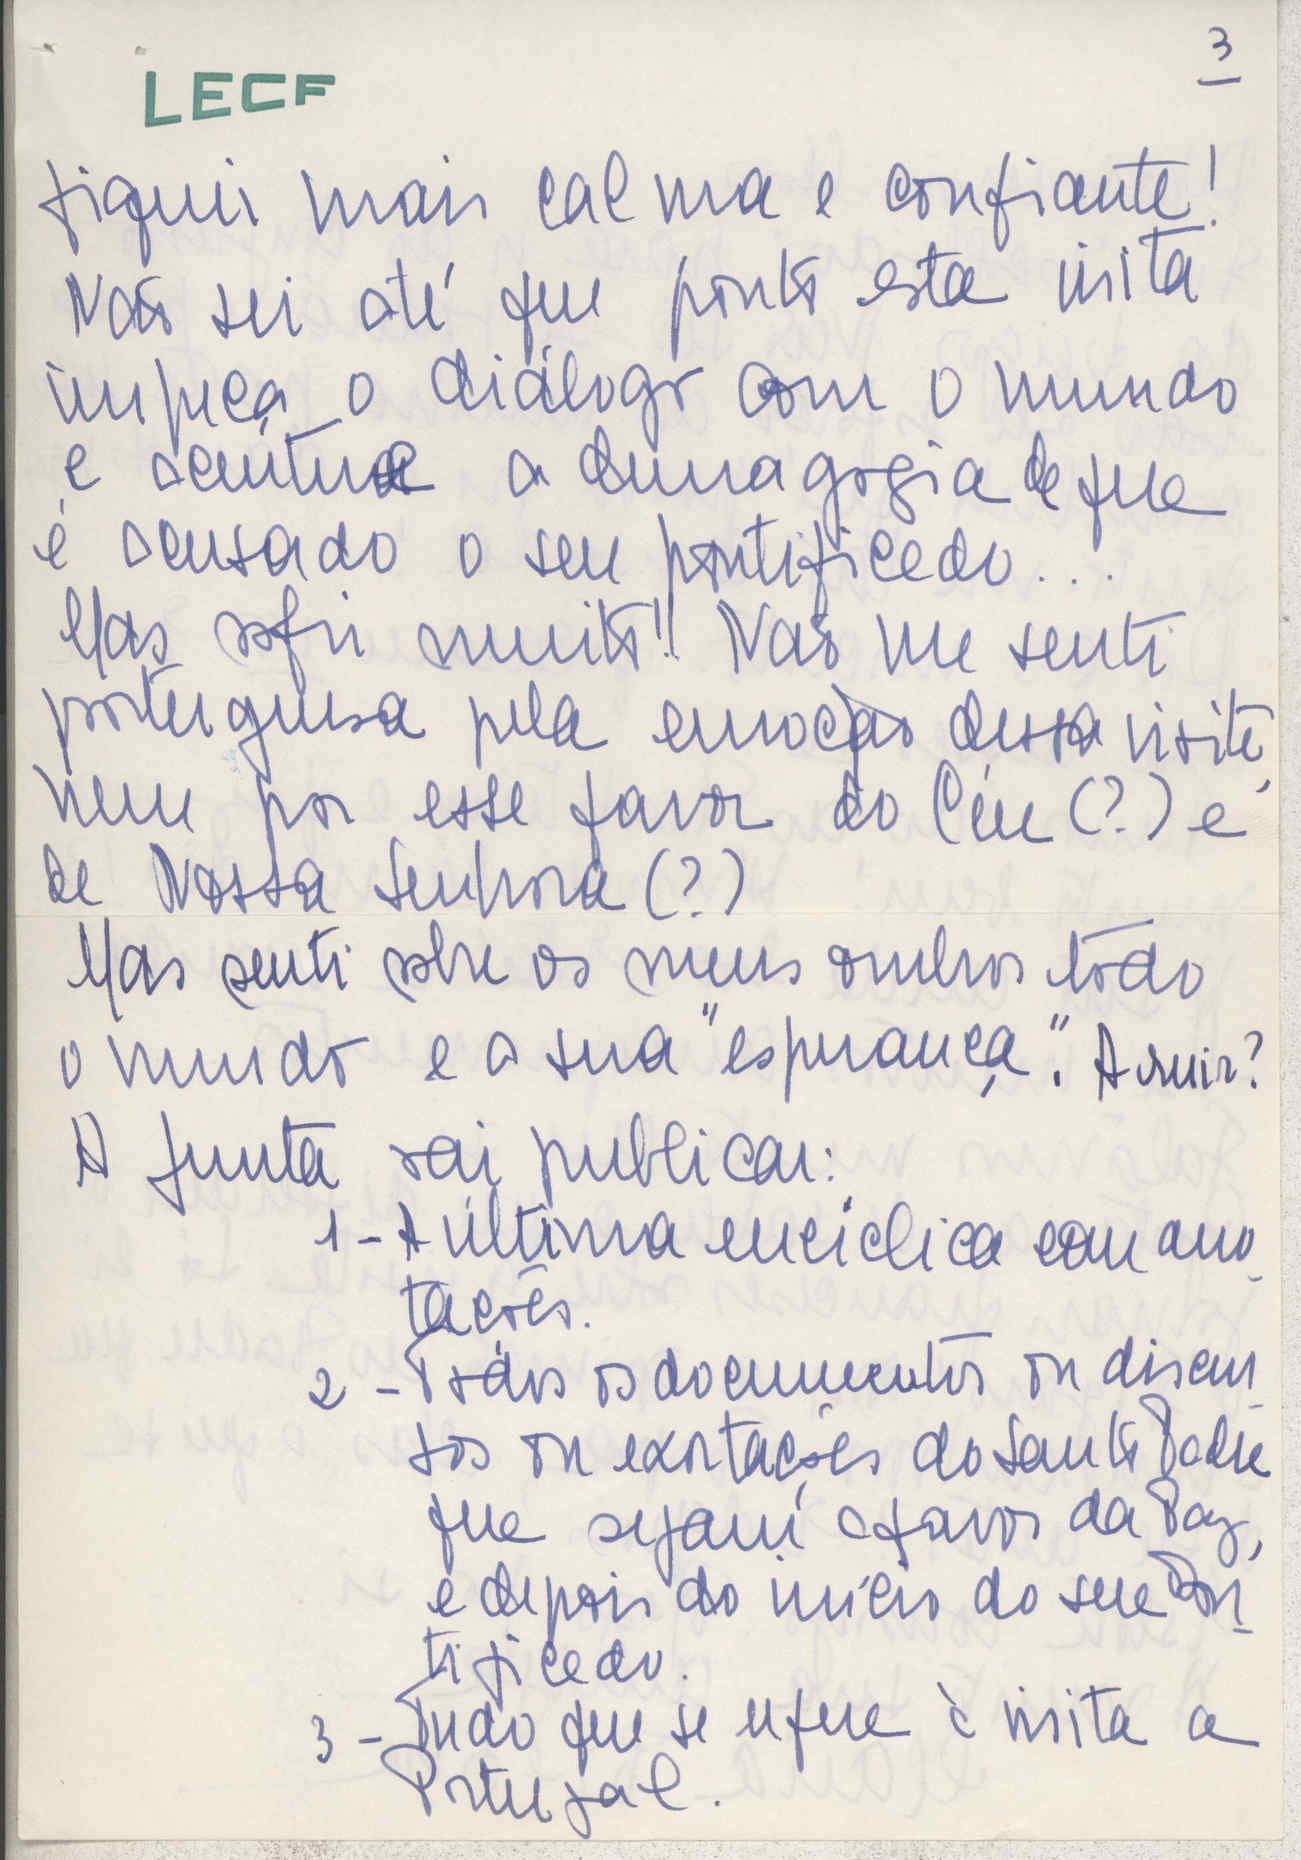 3
LECF
fiquei mais calma e confiante!
Não sei até que ponto esta visita
impeça o diálogo com o mundo
e acentue a demagogia de que
é acusado o seu pontificado...
Mas sofri muito!! Não me senti
portuguesa pela emoção dessa visita,
nem por esse favor do Céu (?) e
de Nossa Senhora (?)
Mas senti sobre os meus ombros todo
o mundo e a sua "esperança". A ruir?
A Junta vai publicar:
1 - A última encíclica com ano-
tações.
2 - Todos os documentos ou discur-
sos ou exortações do Santo Padre
que sejam a favor da Paz,
e depois do início do seu Pon-
tificado.
3 - Tudo que se refere à visita a
Portugal.